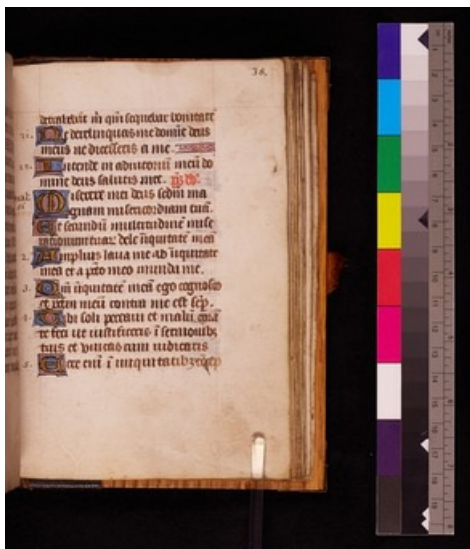 38.
detrahebāt m̄ qm̄ sequebar bonitatē
21. Ne derelinquas me domine deus
meus ne discesseris a me.
22. Intende in adiutoriū meū do
mine deus salutis mee.
Miserere mei deus scdm̄ ma
gnam misericordiam tuā.
Et secundū multitudinē mise
rationum tuar dele iniquitatē meā
2. Amplius laua me ab iniquitate
mea et a pcto meo munda me.
3. Qm̄ iniquitatē meā ego cognosco
et pctm̄ meū contra me est sēp.
4. Tibi soli peccaui et malū corā
te feci ut iustificeris ī sermonibz
tuis et vincas cum iudicaris
5. Ecce enī ī iniquitatibz cōcep